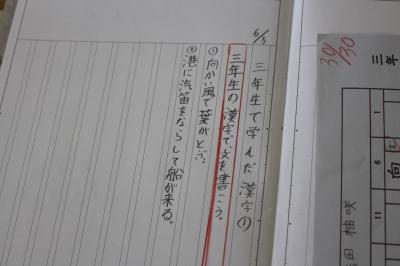 6/3
三年生で学んだ漢字①
三年生の漢字で、文を書こう。
①向かい風で葉がとぶ。
②港に汽笛をならして船が来る。
30/30
三年
1
6
向
11
田 柚咲